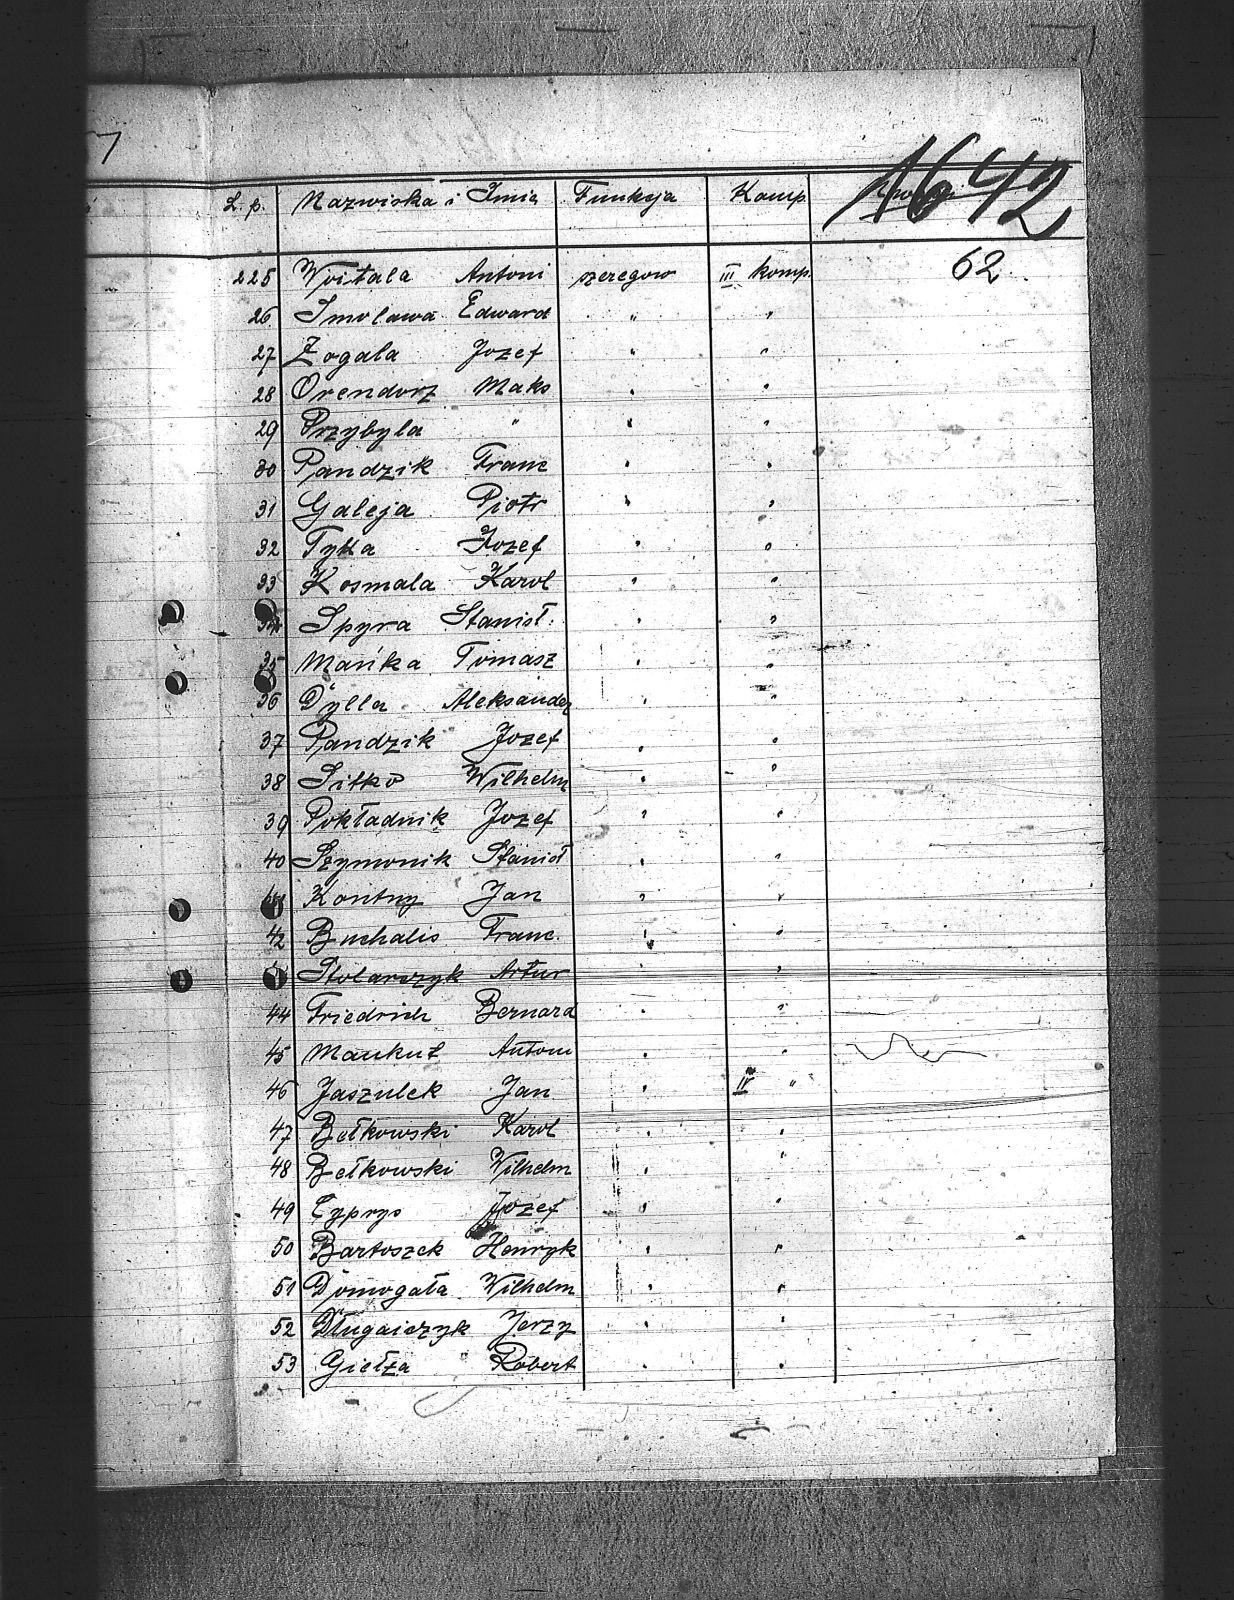 7
1642
L. p. Nazwiska i Imię Funkcja Komp.
62
225 Woitala Antoni szeregow III komp.
26 Smolawa Edward " "
27 Zogala Jozef " "
28 Orendorz Maks " "
29 Przybyla " " "
30 Pandzik Franc " "
31 Galeja Piotr " "
32 Tytla Jozef " "
33 Kosmala Karol " "
34 Spyra Stanisł. " "
35 Mańka Tomasz " "
36 Dylla Aleksander " "
37 Pandzik Jozef " "
38 Sitko Wilhelm " "
39 Pokładnik Jozef " "
40 Szymonik Stanisł " "
41 Kontny Jan " "
42 Buchalis Franc. " "
Stolarczyk Artur " "
44 Friedrich Bernard " "
45 Antoni " "
46 Jaszulek Jan " IV "
47 Bełkowski Karol " "
48 Bełkowski Wilhelm " "
49 Cyprys Jozef " "
50 Bartoszek Henryk " "
51 Domogała Wilhelm " "
52 Długaiczyk Jerzy " "
53 Giełza Robert " "